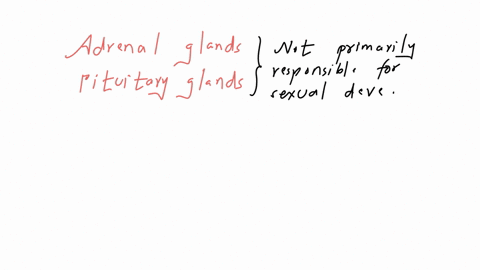 Adrenal glands
Pituitary glands
Not primarily
responsible for
sexual deve.